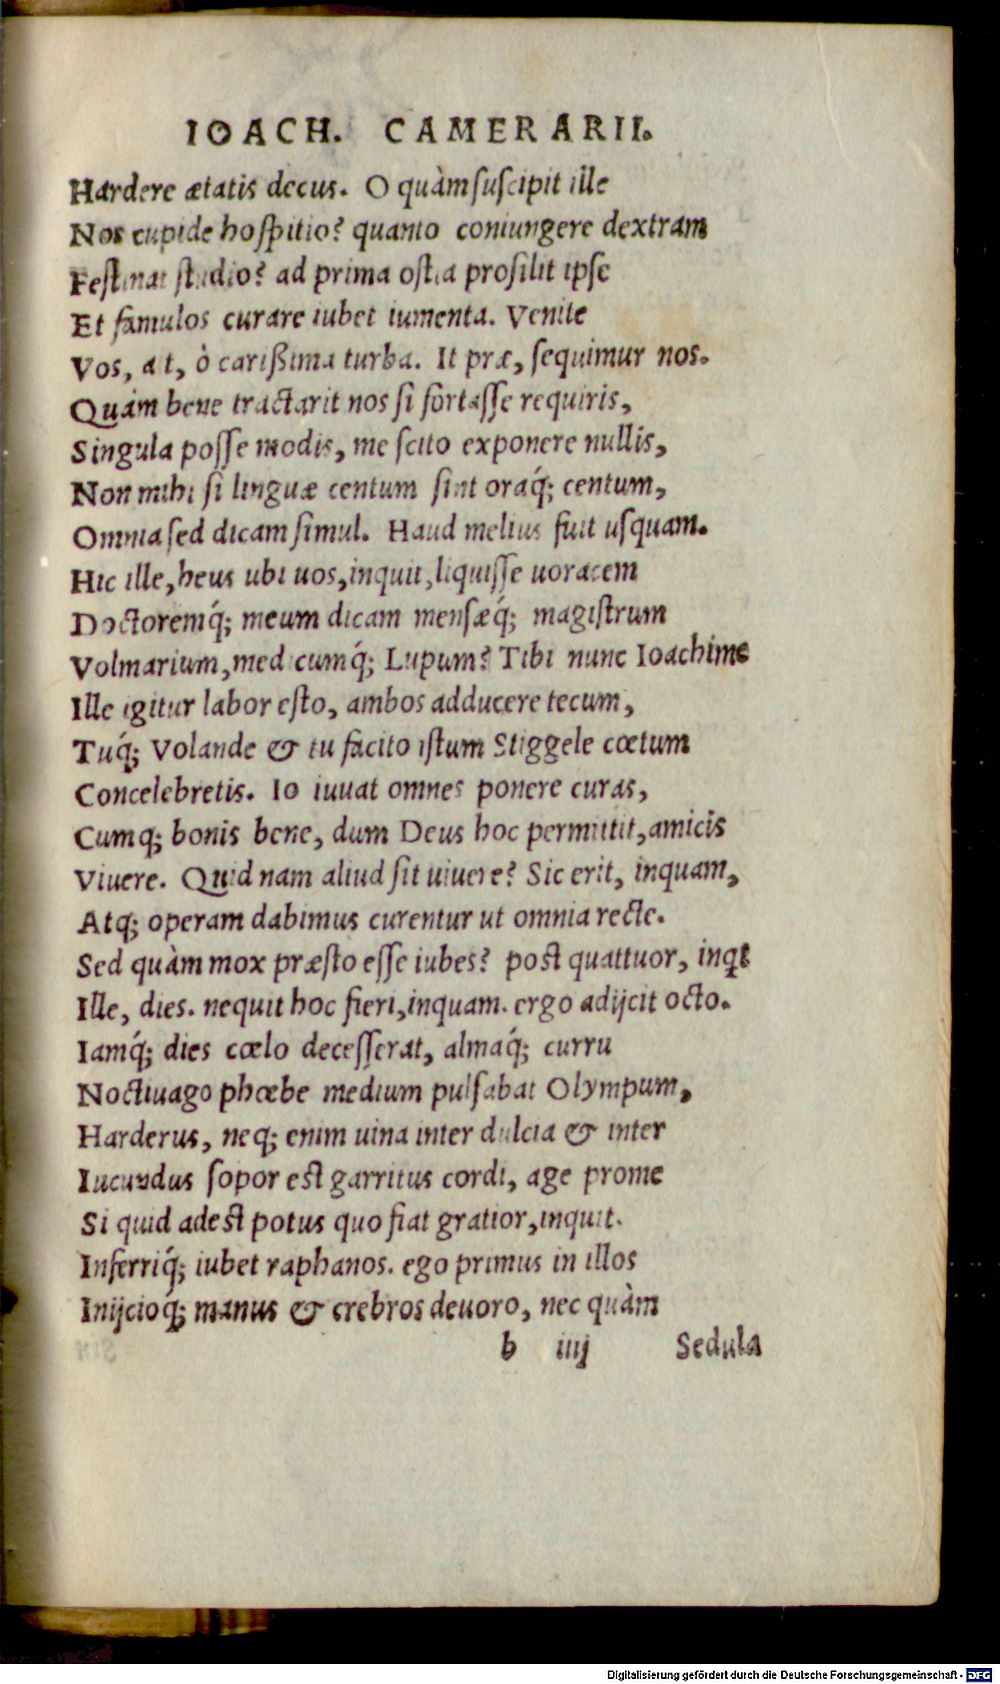 IOACH. CAMERARII.
Hardere ætatis decus. O quàm suscipit ille
Nos cupide hospitio? quanto coniungere dextram
Festinat studio? ad prima ostia prosilit ipse
Et famulos curare iubet iumenta. Venite
Vos, a t, ò carißima turba. It præ, sequimur nos.
Quàm bene tractarit nos si fortasse requiris,
Singula posse modis, me scito exponere nullis,
Non mihi si linguæ centum sint oraq́; centum,
Omnia sed dicam simul. Haud melius fuit usquam.
Hic ille, heus ubi uos, inquit, liquisse uoracem
Doctoremq́; meum dicam mensæq́; magistrum
Volmarium, med cumq́; Lupum? Tibi nunc Ioachime
Ille igitur labor esto, ambos adducere tecum,
Tuq́; Volande & tu facito istum Stiggele cœtum
Concelebretis. Io iuuat omnes ponere curas,
Cumq; bonis bene, dum Deus hoc permittit, amicis
Viuere. Quid nam aliud sit uiuere? Sic erit, inquam,
Atq; operam dabimus curentur ut omnia recte.
Sed quàm mox præsto esse iubes? post quattuor, inqt
Ille, dies. nequit hoc fieri, inquam. ergo adijcit octo.
Iamq́; dies cœlo decesserat, almaq́; curru
Noctiuago phœbe medium pulsabat Olympum,
Harderus, neq; enim uina inter dulcia & inter
Iucundus sopor est garritus cordi, age prome
Si quid adest potus quo fiat gratior, inquit.
Inferriq́; iubet raphanos. ego primus in illos
Inijcioq́; manus & crebros deuoro, nec quàm
b iiij Sedula
Digitalisierung gefördert durch die Deutsche Forschungsgemeinschaft - DFG